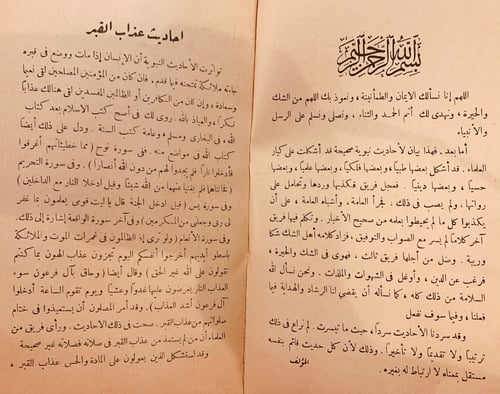 بسم الله الرحمن الرحيم
اللهم إنا نسألك الايمان والطمأنينة، ونعوذ بك اللهم من الشك
والحيرة، ونهدى لك أتم الحمد والثناء، ونصلى ونسلم على الرسل
والأنبياء.
أما بعد. فهذا بيان لأحاديث نبوية صحيحة قد أشكلت على كبار
العلماء. قد أشكل بعضها طبيا، وبعضها فلكيا، وبعضها علميا، وبعضها
حسيا، وبعضها دينيا. فعجل فريق فكذبها وردها وتحامل على
رواتها. ولم يصب فى ذلك. فجرأ العامة، وأشباه العامة، على أن
يكذبوا كل ما لم يحيطوا بعلمه من صحيح الأخبار. وتكلم فيها فريق
آخر كلاما لم يسر مع الصواب والتوفيق، فزاد كلامه أهل الشك شكا
وريبة. وضل من أجلها فريق ثالث، فهوى فى الشك والحيرة،
فرغب عن الدين، وأوغل فى الشهوات والملذات. ونحن نسأل الله
السلامة من ذلك كله، كما نسأله أن يقضى لنا الرشاد والهداية فيما
فعلنا، وفيما سوف نفعل
وقد سردنا الأحاديث سردا، حيث ما تيسرت. لم نراع فى ذلك
ترتيبا ولا تقديما ولا تأخيرا. وذلك لأن كل حديث قائم بنفسه
مستقل بمعناه لا ارتباط له بغيره.
المؤلف
احاديث عذاب القبر
تواترت الأحاديث النبوية أن الإنسان إذا مات ووضع فى قبره
جاءته ملائكة تمتحنه فيما قدم. فان كان من المؤمنين المصلحين لقى نعيما
وسعادة، وإن كان من الكافرين أو الظالمين المفسدين لقى هنالك عذابا
نكرا، والعياذ بالله. روى ذلك فى أصح كتب الاسلام بعد كتاب
الله، فى البخارى ومسلم، وعامة كتب السنة. ودل على ذلك أيضا
كتاب الله فى مواضع منه. ففى سورة نوح (مما خطيئاتهم أغرقوا
فأدخلوا نارا فلم يجدوا لهم من دون الله أنصارا). وفى سورة التحريم
(فخانتاهما فلم يغنيا عنهما من الله شيئا وقيل ادخلا النار مع الداخلين)
وفى سورة يس (قيل ادخل الجنة قال ياليت قومى يعلمون بما غفر
لى ربى وجعلنى من المكرمين) وفى آخر سورة الواقعة إشارة إلى ذلك.
وفى سورة الأنعام (ولو ترى إذ الظالمون فى غمرات الموت والملائكة
باسطو أيديهم أخرجوا أنفسكم اليوم تجزون عذاب الهون بما كنتم
تقولون على الله غير الحق) وقال أيضا (وحاق بآل فرعون سوء
العذاب النار يعرضون عليها غدوا وعشيا ويوم تقوم الساعة أدخلوا
آل فرعون أشد العذاب). وقد أمر المصلون أن يستعيذوا فى ختام
صلواتهم من عذاب القبر. صحت فى ذلك الأحاديث. ورأى فريق من
العلماء أن من لم يستعذ من عذاب القبر فى صلاته فصلاته غير صحيحة
وقد استشكل الذين يعولون على المادة والحس عذاب القبر،